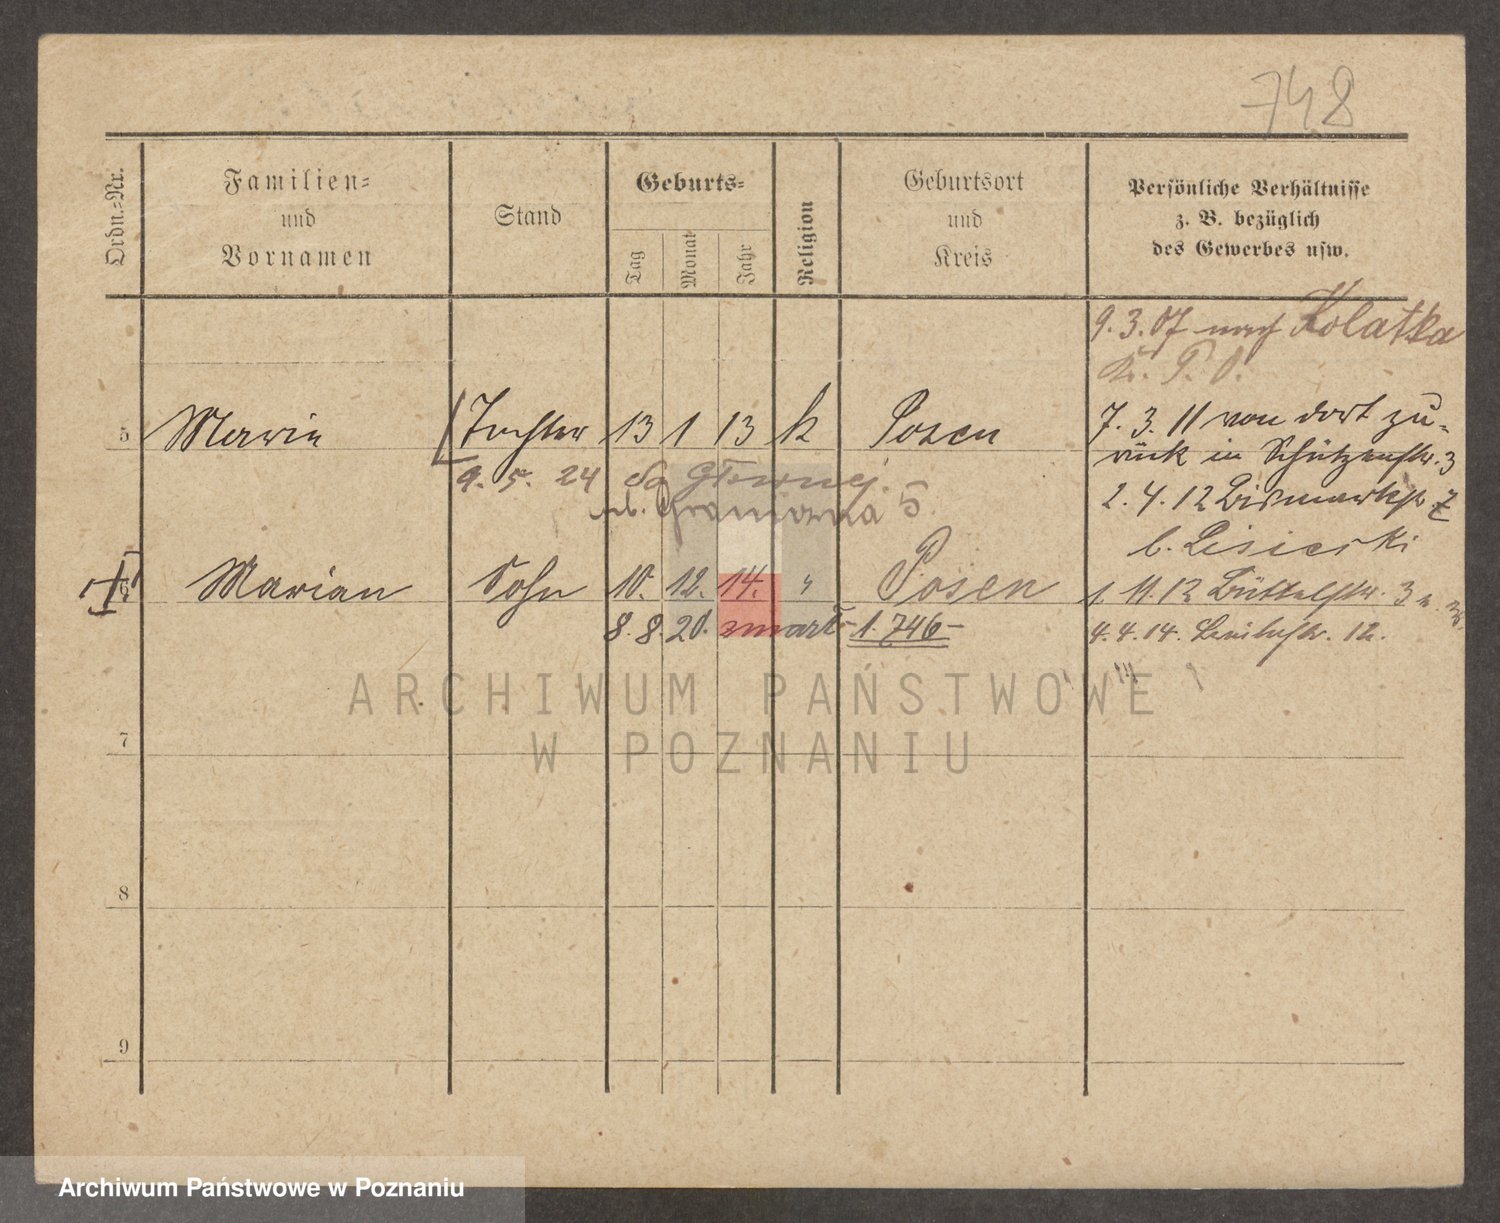 748
Ordn.-Nr.
Familien-
und
Vornamen
Stand
Geburts-
Tag
Monat
Jahr
Religion
Geburtsort
und
Kreis
Persönliche Verhältnisse
z. B. bezüglich
des Gewerbes usw.
9.3.07 nach Kolatka
Kr. P. O.
5 Marie Tochter 13 1 13 k Posen
7.3.11 von dort zu-
rück in Schützenstr. 3
9. 5. 24 do Głownej.
ul. Graniczna 5.
2.4.12 Bismarckstr. 7
b. Lisiecki
6 Marian Sohn 10. 12. 14. " Posen
1.11.12 Büttelstr. 3
8. 8. 20. zmarł - 1. 746 -
4.4.14. 12.
ARCHIWUM PAŃSTWOWE
W POZNANIU
7
8
9
Archiwum Państwowe w Poznaniu